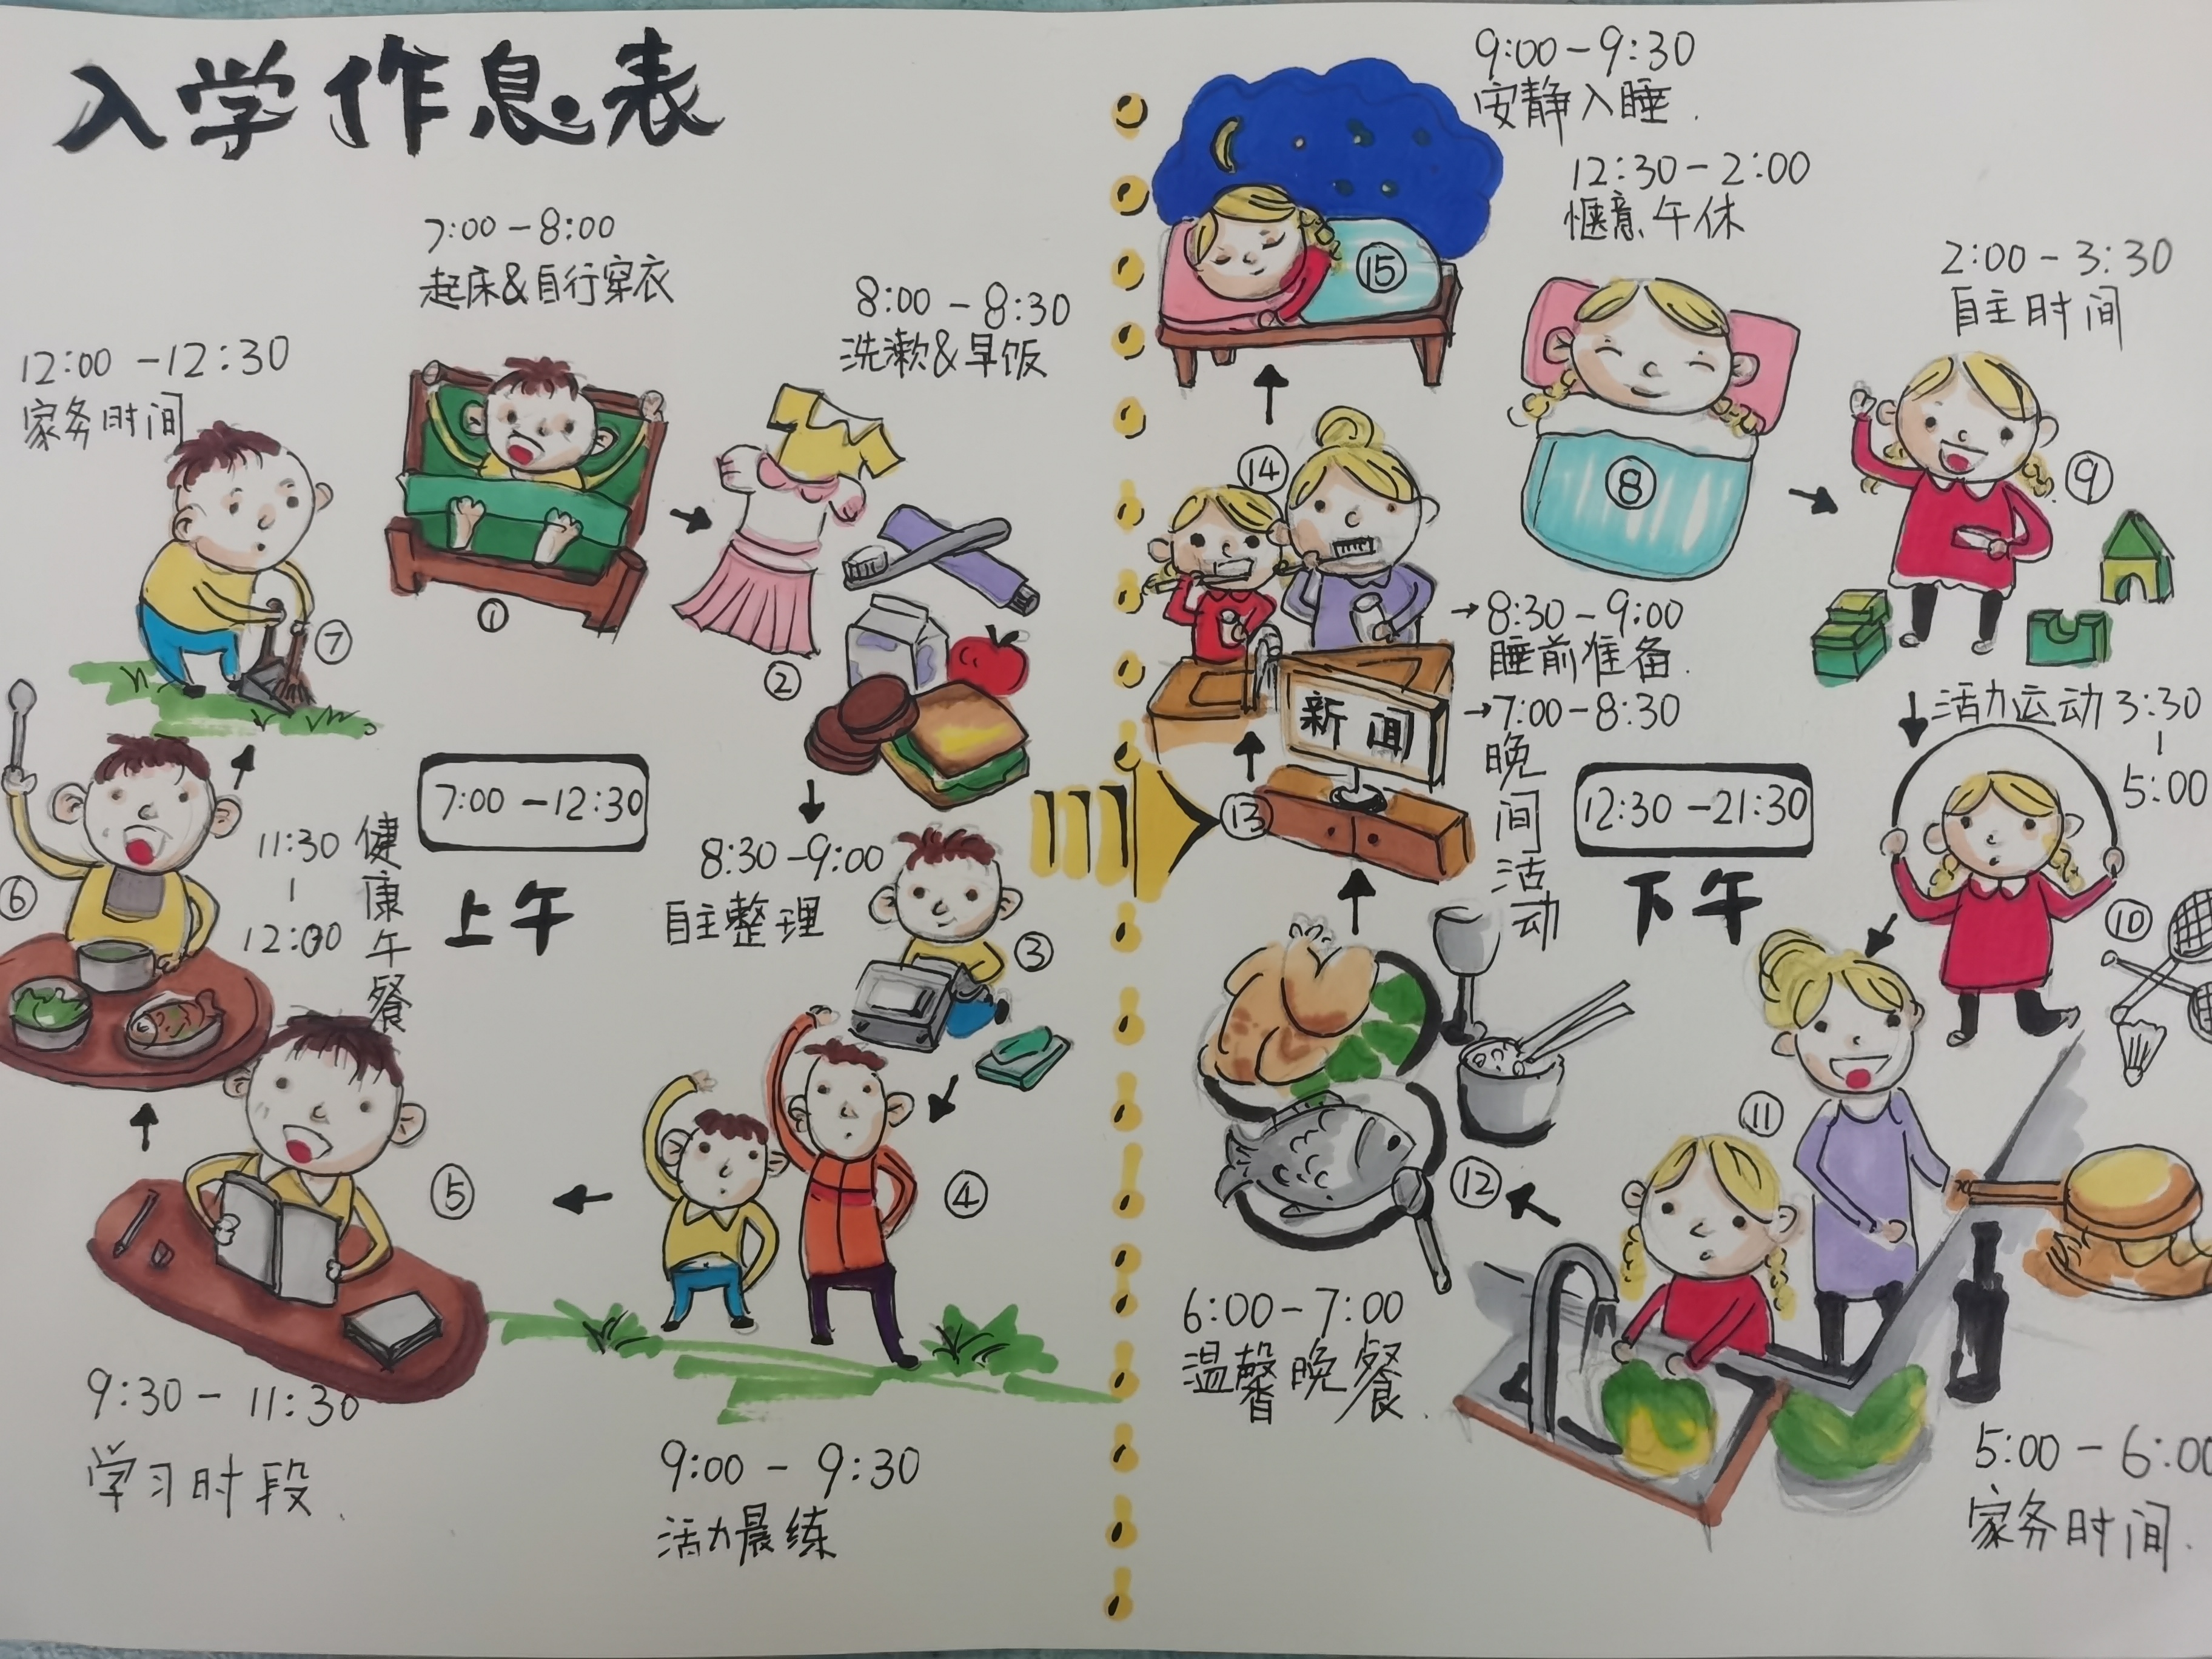 入学作息表
7:00-8:00
起床&自行穿衣
①
8:00-8:30
洗漱&早饭
②
8:30-9:00
自主整理
③
9:00-9:30
活力晨练
④
9:30-11:30
学习时段.
⑤
11:30
|
12:00
健康午餐
⑥
12:00-12:30
家务时间
⑦
7:00-12:30
上午
12:30-2:00
惬意午休
⑧
2:00-3:30
自主时间
⑨
活力运动 3:30
|
5:00
⑩
5:00-6:00
家务时间.
⑪
6:00-7:00
温馨晚餐.
⑫
→7:00-8:30
晚间活动
新闻
⑬
→8:30-9:00
睡前准备.
⑭
9:00-9:30
安静入睡.
⑮
12:30-21:30
下午